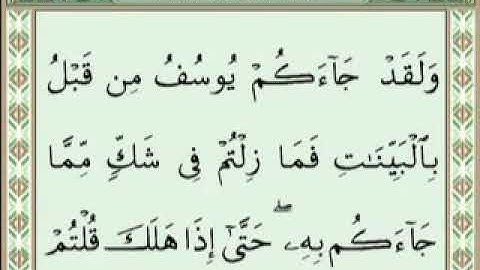 وَلَقَدْ جَآءَكُمْ يُوسُفُ مِن قَبْلُ
بِٱلْبَيِّنَـٰتِ فَمَا زِلْتُمْ فِى شَكٍّۢ مِّمَّا
جَآءَكُم بِهِۦ ۖ حَتَّىٰٓ إِذَا هَلَكَ قُلْتُمْ